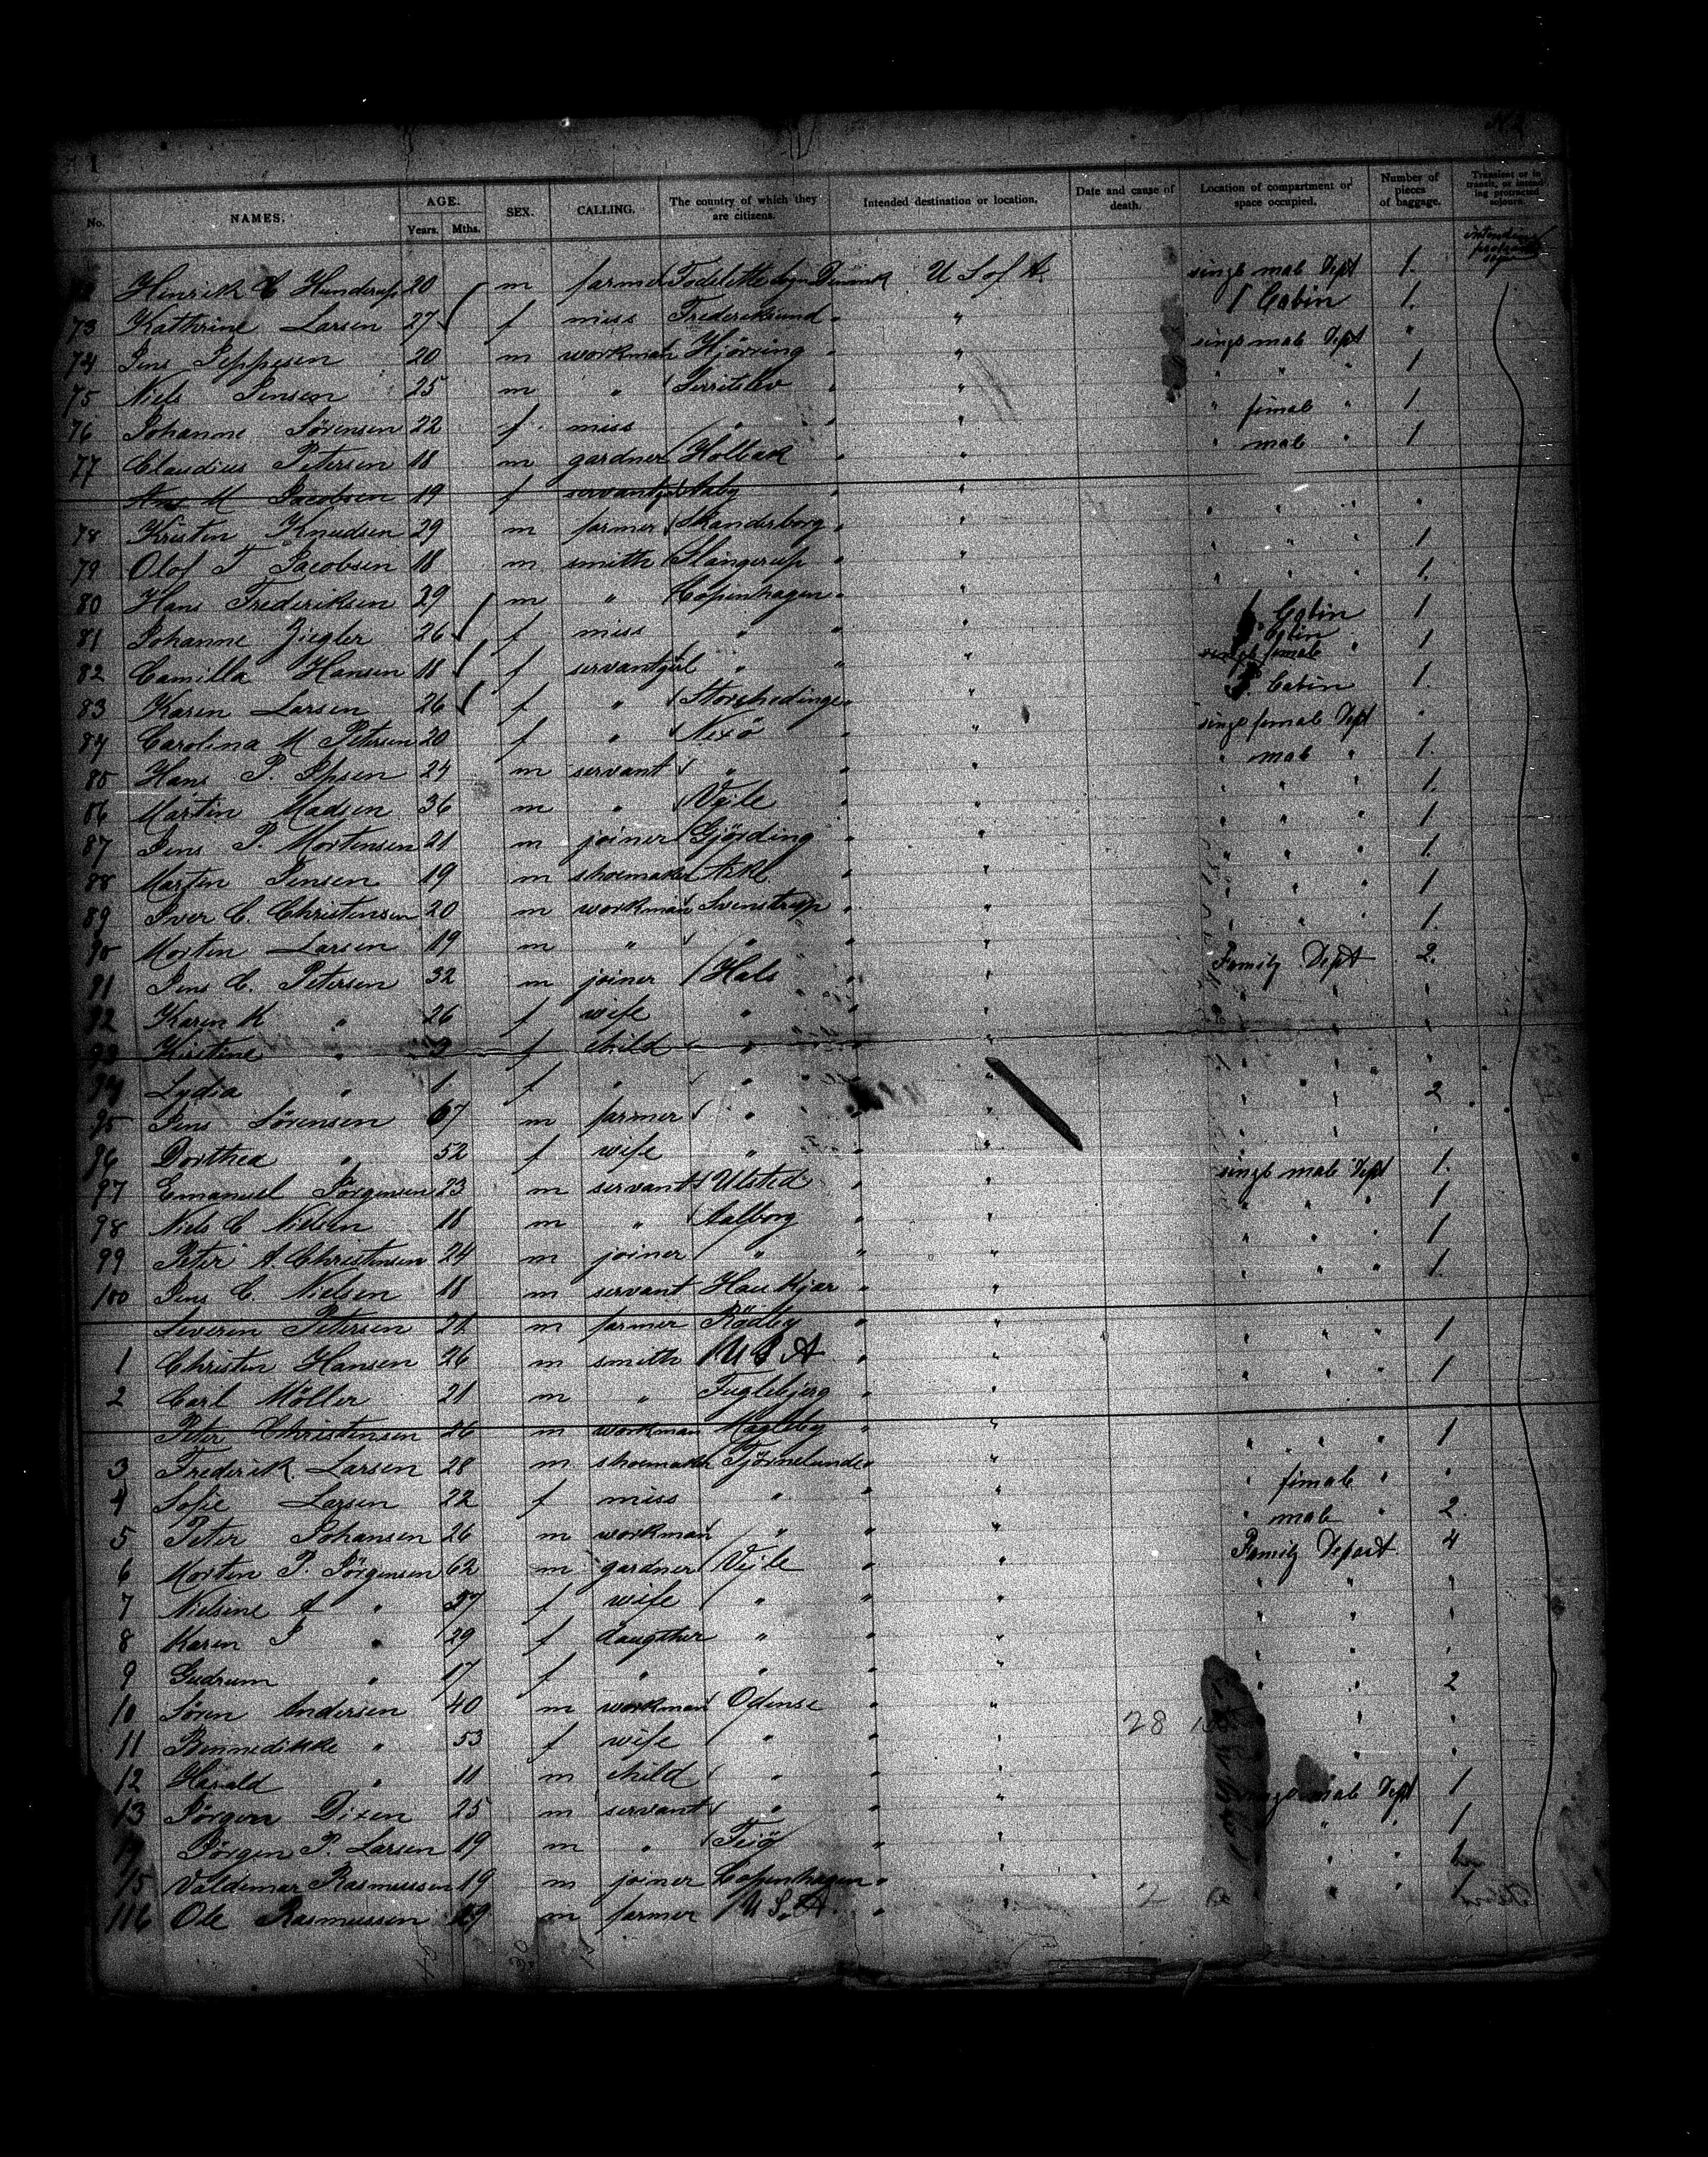 No. NAMES. AGE. Years. Mths. SEX. CALLING. The country of which they are citizens. Intended destination or location. Date and cause of death. Location of compartment or space occupied. Number of pieces of baggage. Transient or in transit, or intending protracted sojourn.
intending protracted
Henrik C Hunderup 20 m farmer Denmark U S of A. single male Dept 1.
73 Kathrine Larsen 27 f miss Frederiksund " " 1 Cabin 1.
74 Jens Jeppesen 20 m workman Hjörring " " single male Dept "
75 Niels Jensen 25 m " Serritslev " " " " " 1
76 Johanne Sörensen 22 f miss " " " " female " 1.
77 Claudius Petersen 18 m gardner Holbæk " " " male " 1
Ane M Jacobsen 19 f servantgirl Aaby " "
78 Kristen Knudsen 29 m farmer Skanderborg " " " " " "
79 Olof T Jacobsen 18 m smith Slangerup " " " " " 1
80 Hans Frederiksen 29 m " Copenhagen " " " " " 1.
81 Johanne Ziegler 26 f miss " " " Cabin 1
82 Camilla Hansen 18 f servantgirl " " " single female " 1
83 Karen Larsen 26 f " Storehedinge " " Cabin 1.
84 Carolina M Petersen 20 f " Nexö " " single female Dept "
85 Hans P. Ipsen 24 m servant " " " " male " 1.
86 Martin Madsen 36 m " Vejle " " " " " 1.
87 Jens P. Mortensen 21 m joiner Gjörding " " " " " 1
88 Marten Jensen 19 m shoemaker " " " " " 1.
89 Iver C. Christensen 20 m workman Svenstrup " " " " " 1
90 Morten Larsen 19 m " " " " " " " 1.
91 Jens C. Petersen 32 m joiner Hals " " Family Dept 2.
92 Karen K " 26 f wife " " " " " "
93 Kirstine " 3 f child " " " " " "
94 Lydia " 1 f " " " " " " "
95 Jens Sörensen 67 m farmer " " " " " 2
96 Dorthea " 52 f wife " " " " " "
97 Emanuel Jörgensen 23 m servant Ulsted " " single male Dept 1.
98 Niels C Nielsen 18 m " Aalborg " " " " " 1
99 Peter A. Christensen 24 m joiner " " " " " " 1
100 Jens C. Nielsen 18 m servant Hou Kjær " " " " " 1.
Severen Petersen 21 m farmer Rödby " "
1 Christen Hansen 26 m smith U S A " " " " " 1
2 Carl Möller 21 m " Fuglebjerg " " " " " 1
Peter Christensen 26 m workman Magleby " "
3 Frederik Larsen 28 m shoemaker Tjörnelunde " " " " " 1
4 Sofie Larsen 22 f miss " " " " female " "
5 Peter Johansen 26 m workman " " " " male " 2.
6 Morten P. Jörgensen 62 m gardner Vejle " " Family Depart. 4
7 Nielsine A " f wife " " " " " "
8 Karen J " 29 f daugther " " " " " "
9 Gudrum " 17 f " " " " " " "
10 Sören Andersen 40 m workman Odense " " " " 2
11 Bennedikke " 53 f wife " " " " " "
12 Harald " 11 m child " " " " " "
13 Jörgen Dixen 25 m servant " " " single male Dept 1
14 Jörgen P. Larsen 19 m " Fejö " " " " 1
15 Valdemar Rasmussen 19 m joiner Copenhagen " " " "
116 Ole Rasmussen 19 m farmer U S A. " " " 1